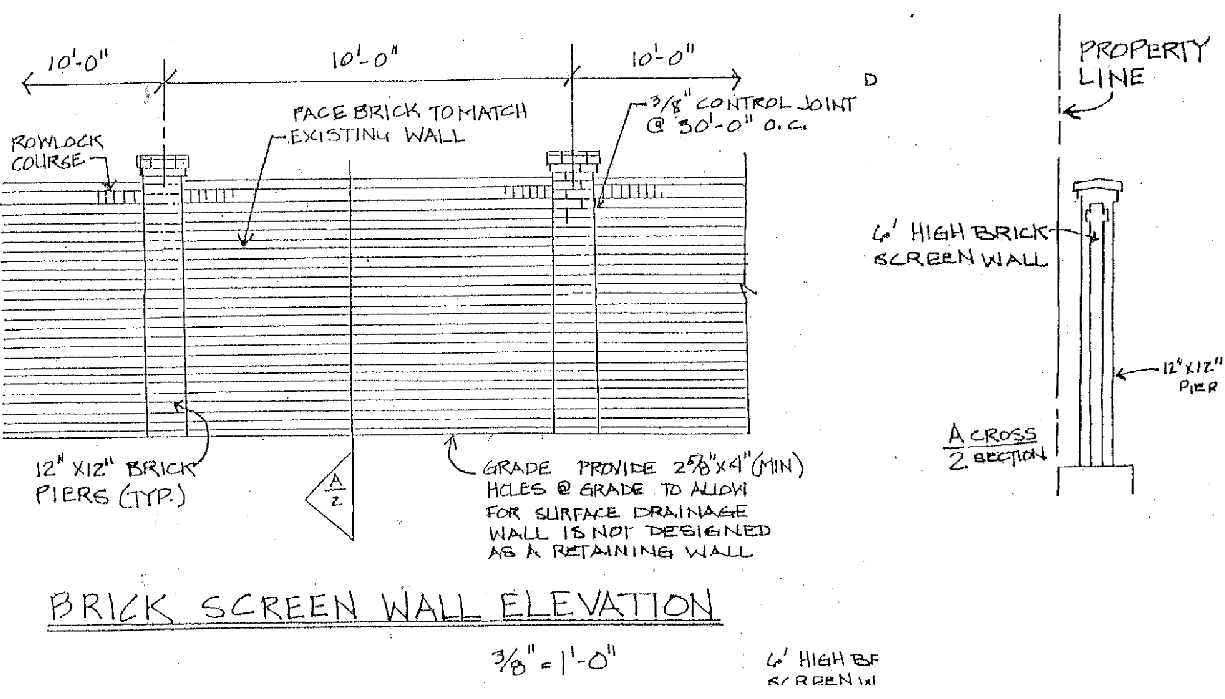 10'-0"
10'-0"
10'-0"
D
PROPERTY
LINE
FACE BRICK TO MATCH
EXISTING WALL
3/8" CONTROL JOINT
@ 30'-0" O.C.
ROWLOCK
COURSE
6' HIGH BRICK
SCREEN WALL
12" X 12"
PIER
A CROSS
2 SECTION
12" X 12" BRICK
PIERS (TYP.)
A
2
GRADE PROVIDE 2 5/8" X 4" (MIN)
HOLES @ GRADE TO ALLOW
FOR SURFACE DRAINAGE
WALL IS NOT DESIGNED
AS A RETAINING WALL
BRICK SCREEN WALL ELEVATION
3/8" = 1'-0"
6' HIGH BR
SCREEN W